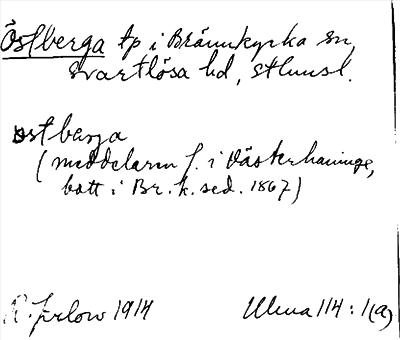 Östberga tp i Brännkyrka sn,
Svartlösa hd, Sthlmsl.
ostberja
(meddelaren f. i Västerhaninge,
bott i Br.k. sed. 1867)
1914 114 : 1(a)